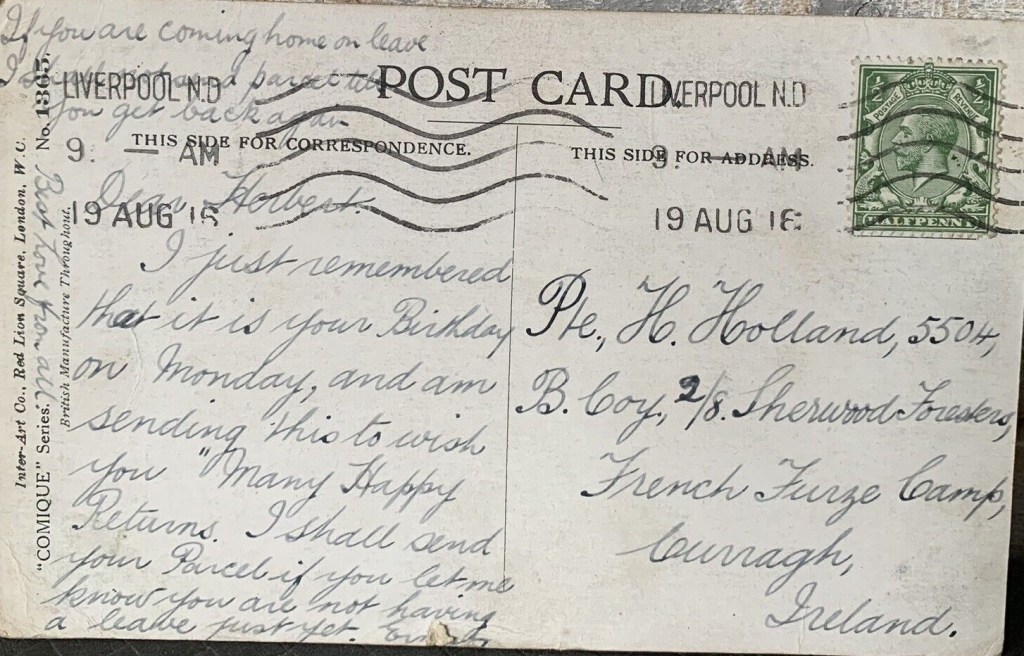 If you are coming home on leave
I a parcel
you get back again
POST CARD.
LIVERPOOL N.D
9. — AM
19 AUG 16
LIVERPOOL N.D
9. — AM
19 AUG 16
POSTAGE REVENUE
HALFPENNY
THIS SIDE FOR CORRESPONDENCE.
THIS SIDE FOR ADDRESS.
Dear Herbert.
I just remembered
that it is your Birthday
on Monday, and am
sending this to wish
you "Many Happy
Returns. I shall send
your Parcel if you let me
know you are not having
a leave just yet.
Pte., H. Holland, 5504,
B. Coy, 2/8. Sherwood Foresters,
French Furze Camp,
Curragh,
Ireland.
Best Love from all
Inter-Art Co., Red Lion Square, London, W.C.
"COMIQUE" Series. No. 1365.
British Manufacture Throughout.